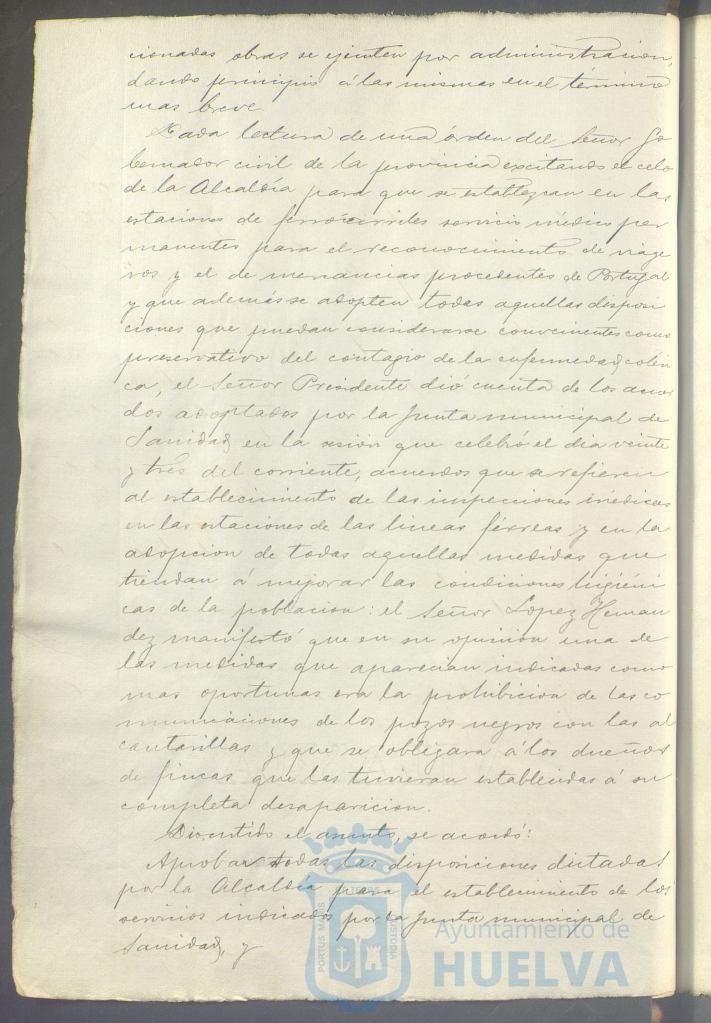 cionadas obras se ejecuten por administracion,
dando principio á las mismas en el término
mas breve
Dada lectura de una órden del Señor Go
bernador civil de la provincia excitando el celo
de la Alcaldía para que se establezcan en las
estaciones de ferrocarriles servicio médico per
manentes para el reconocimiento de viage
ros y el de mercancias procedentes de Portugal
y que además se adopten todas aquellas disposi
ciones que puedan considerarse convenientes como
preservativo del contagio de la enfermedad coléri
ca, el Señor Presidente dió cuenta de los acuer
dos adoptados por la Junta municipal de
Sanidad, en la sesión que celebró el dia veinte
y tres del corriente, acuerdos que se refieren
al establecimiento de las inspecciones médicas
en las estaciones de las lineas férreas y en la
adopcion de todas aquellas medidas que
tiendan á mejorar las condiciones higiéni
cas de la poblacion: el Señor Lopez Hernan
dez manifestó que en su opinion una de
las medidas que aparecian indicadas como
mas oportunas era la prohibicion de las co
municaciones de los pozos negros con las al
cantarillas y que se obligara á los dueños
de fincas que las tuvieran establecidas á su
completa desaparicion.
Discutido el asunto, se acordó:
Aprobar todas las disposiciones dictadas
por la Alcaldía para el establecimiento de los
servicios indicados por la Junta municipal de
Sanidad, y
PORTUS MARIS ET TERRAE CUSTODIA
Ayuntamiento de
HUELVA